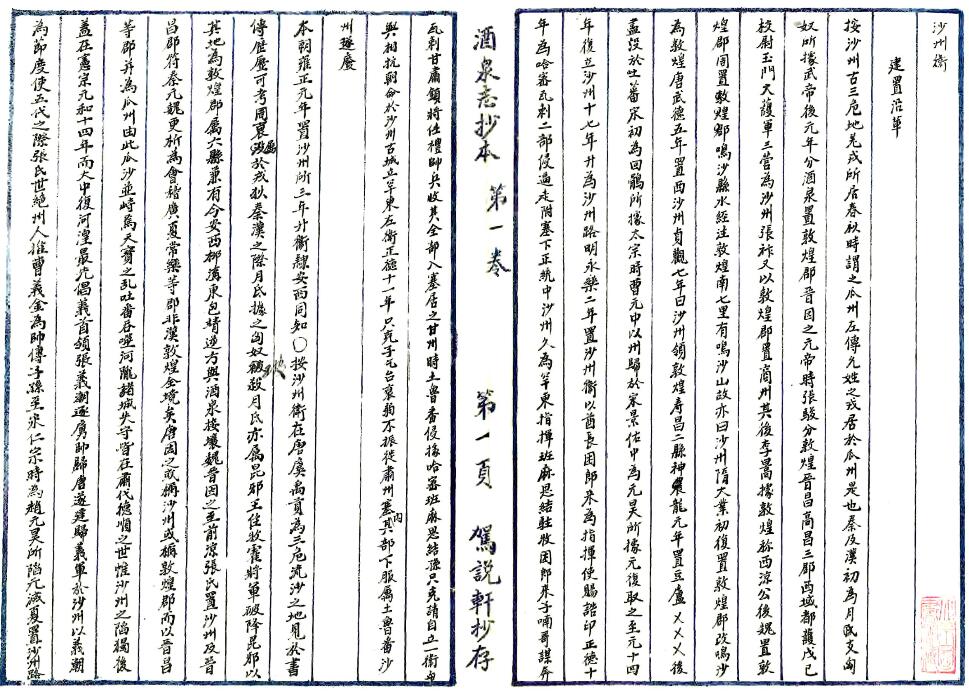 沙州衛
建置沿革
按沙州古三危地羌戎所居春秋時謂之瓜州左傳允姓之戎居於瓜州是也秦及漢初為月氏支匈
奴所據武帝後元年分酒泉置敦煌郡晉因之元帝時張駿分敦煌晉昌高昌三郡西域都護戊己
校尉玉門大護軍三營為沙州張祚又以敦煌郡置商州其後李暠據敦煌称西涼公後魏置敦
煌郡周置敦煌郡鳴沙縣水經注敦煌南七里有鳴沙山故亦曰沙州隋大業初復置敦煌郡改鳴沙
為敦煌唐武德五年置西沙州貞觀七年曰沙州領敦煌寿昌二縣神龍元年置豆盧㐅㐅㐅後
盡没於吐蕃宋初為回鶻所據太宗時曹元中以州歸於宋景佑中為元昊所據元復取之至元十四
年復立沙州十七年廾為沙州路明永樂二年置沙州衛以酋長困郎來為指揮使賜誥印正德十
年為哈密瓦剌二部侵逼走附塞下正統中沙州久為罕東指揮班麻思結駐牧困郎來子喃哥謀奔
酒泉志抄本 第一卷 第一頁 駕説軒抄存
瓦剌甘肅鎮將任禮帥兵收其全部入塞居之甘州時土魯番侵掠哈密班麻思結孫只克請自立一衛
與相抗朝命於沙州古城立罕東左衛正德十一年只克子乞台衰弱不振徙肅州塞內其部下服属土魯番沙
州遂廢
本朝雍正元年置沙州所三年廾衛隸安西同知〇按沙州衛在唐虞禹貢為三危流沙之地見於書
傳歷歷可考周衰於戎狄秦漢之際月氐據之匈奴破殺月氏亦属昆邪王住牧霍將軍破降昆邪以
其地為敦煌郡属六縣兼有今安西柳溝東包靖逆方與酒泉接壤魏晉因之至前涼張氏置沙州及晉
昌郡符秦元魏更析為會稽廣夏常樂等郡非漢敦煌全境矣唐因之或稱沙州或稱敦煌郡而以晉昌
等郡并為瓜州由此瓜沙並峙焉天寶之乱吐番吞噬河隴諸城失守皆在肅代德順之世惟沙州之陷獨後
盖在憲宗元和十四年而大中復河湟最先倡義首領張義潮逐虜帥歸唐遂建歸義軍於沙州以義潮
為節度使五代之際張氏世絕州人推曹義金為帥傳子孫至宋仁宗時為趙元昊所陷元滅夏置沙州路